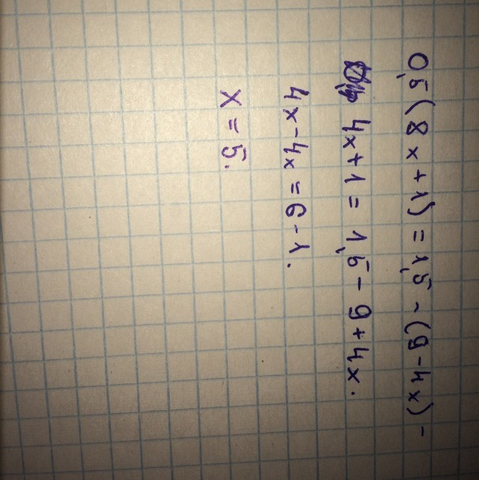 0,5(8x+1)=1,5-(9-4x)-
4x+1=1,5-9+4x.
4x-4x=6-1.
x=5.